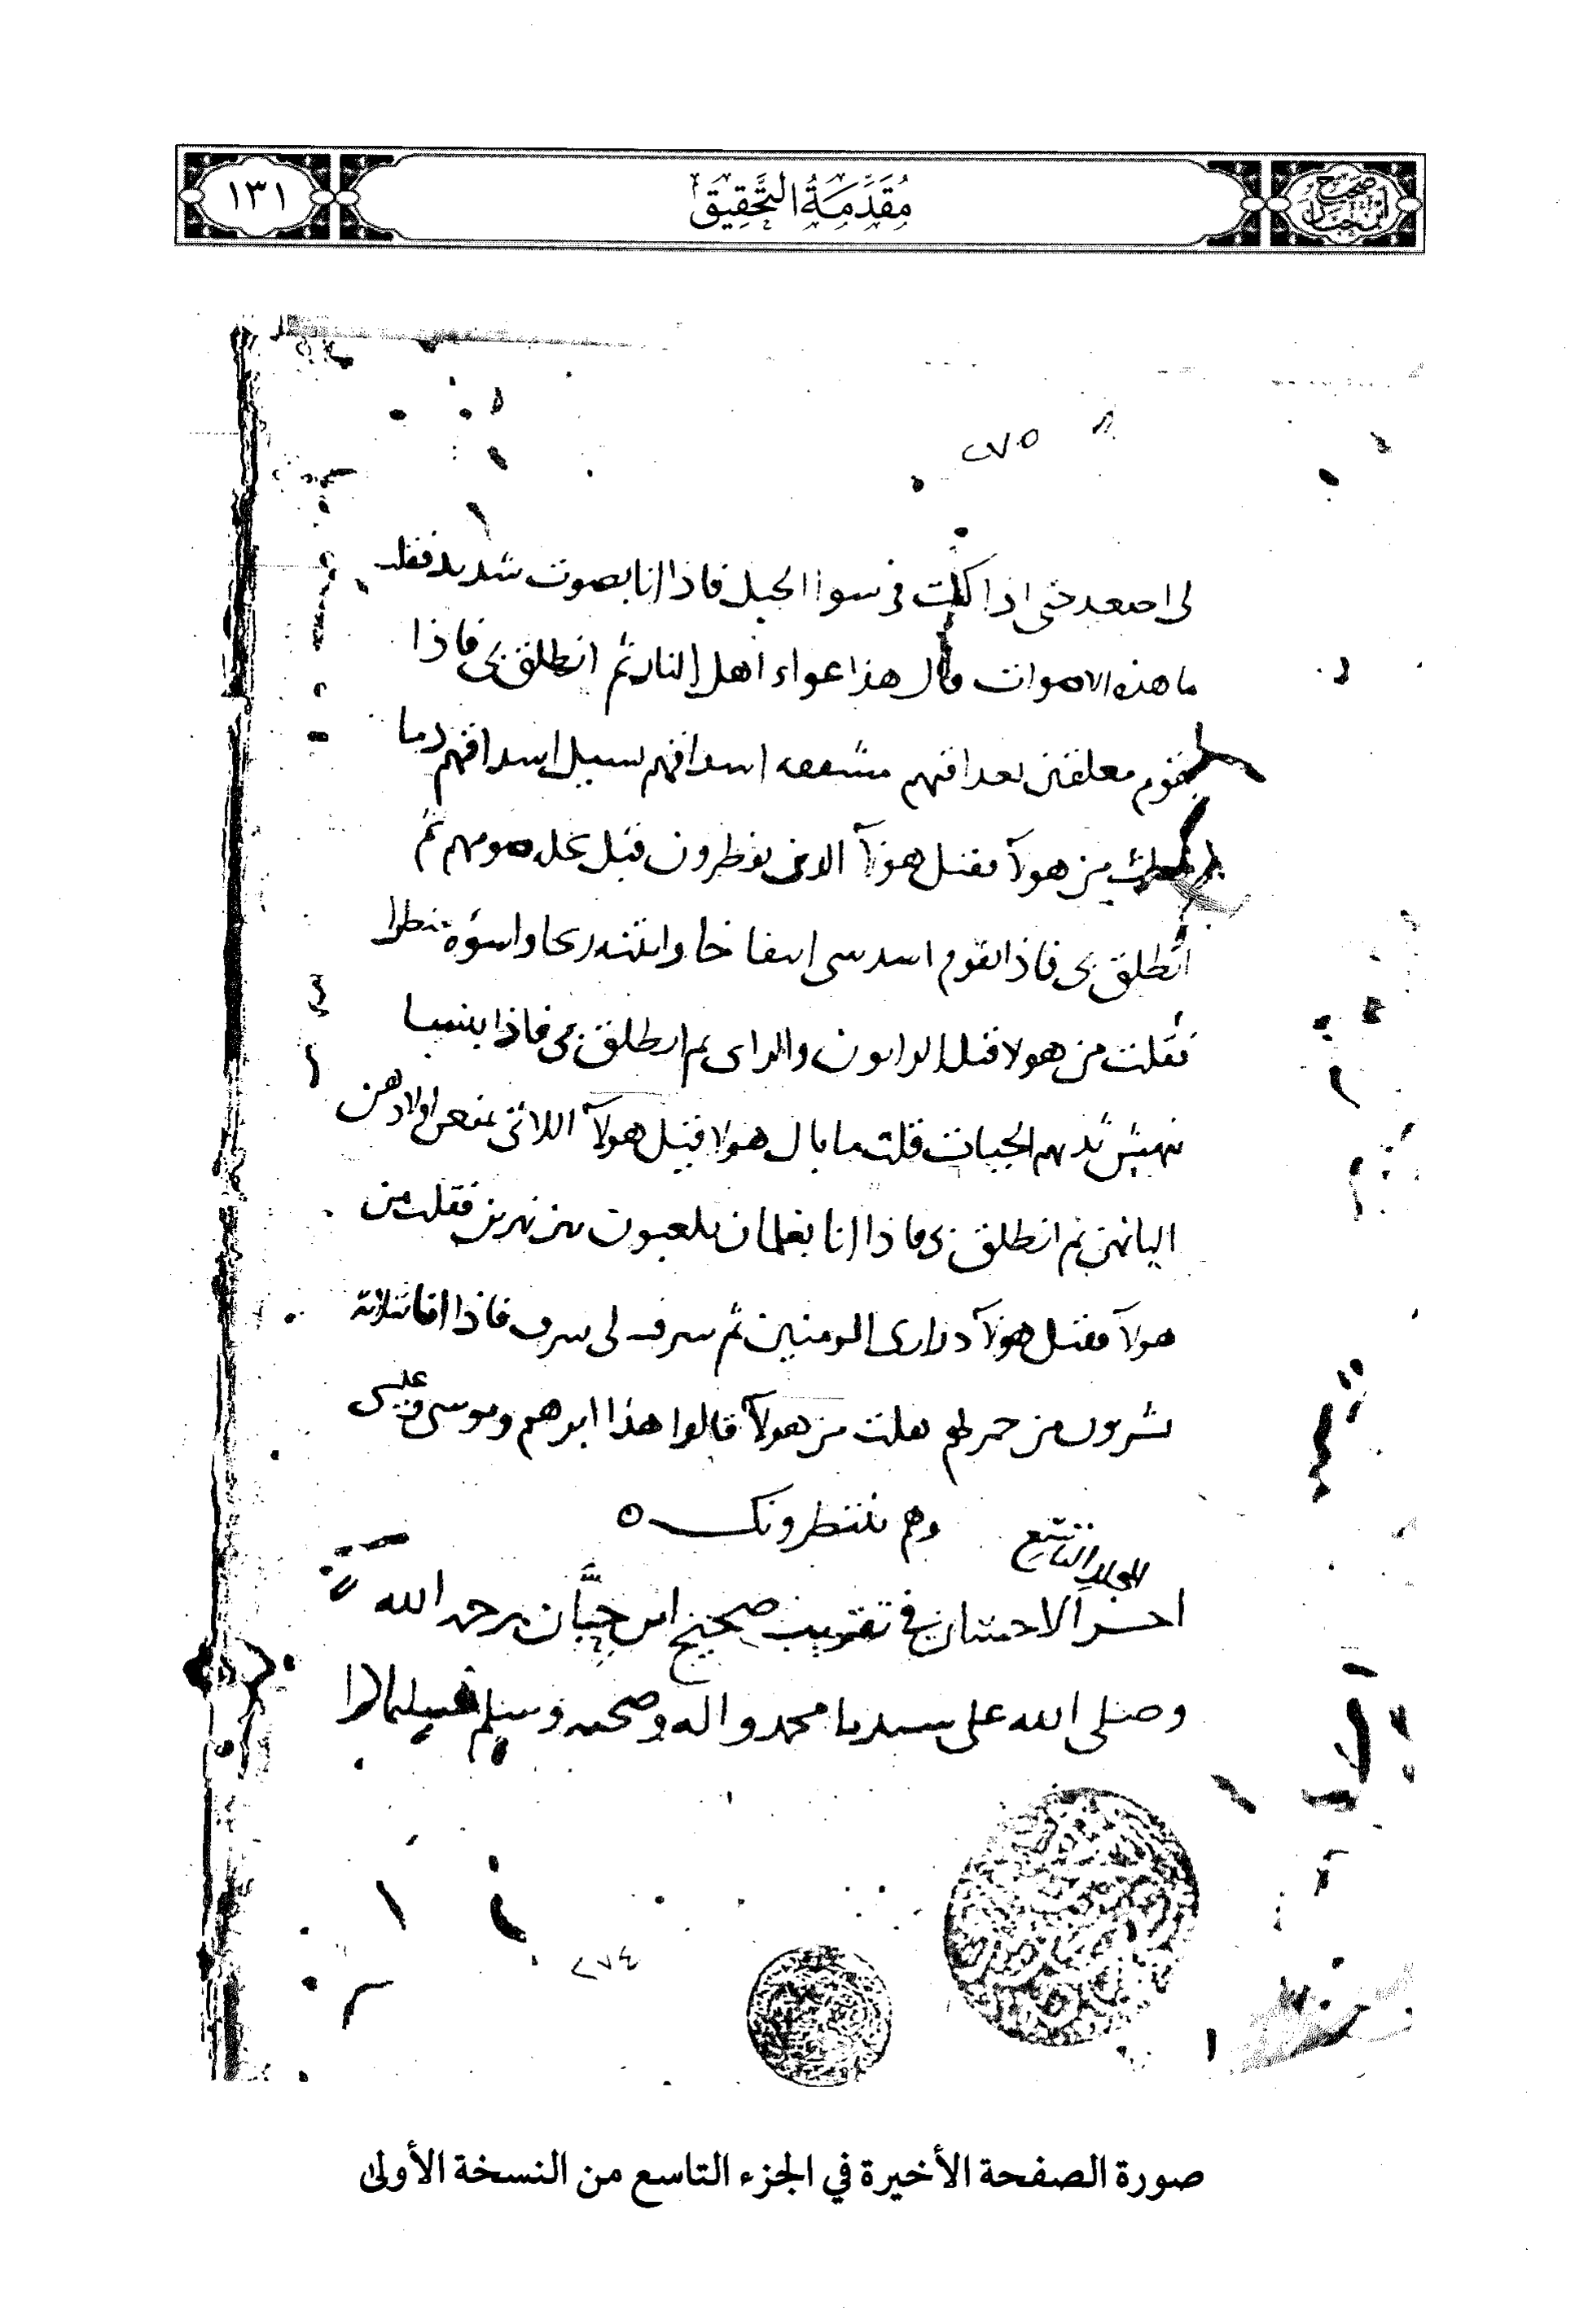 صحيح ابن حبان
مقدمة التحقيق
١٣١
٢٧٥
لى اصعد حتى اذا كنت فى سوا الجبل فاذا انا بصوت شديد فقلت
ما هذه الاصوات قال هذا عواء اهل النار ثم انطلق بى فاذا
بقوم معلقين بعراقيبهم مشققه اشداقهم تسيل اشداقهم دما
فقلت من هولآ فقيل هولآ الذين يفطرون قبل تحله صومهم ثم
انطلق بى فاذا بقوم اشد شى انتفاخا وانتنه ريحا واسوٓه منظرا
فقلت من هولا قيل الزانون والزانى ثم انطلق بى فاذا بنسا
تنهش ثديهن الحيات قلت ما بال هولا قيل هولآ اللاتى يمنعن اولادهن
البانهن ثم انطلق بى فاذا انا بغلمان يلعبون بين نهرين فقلت من
هولآ فقيل هولآ ذرارى المومنين ثم شرف لى شرف فاذا انا بثلاثة
يشربون من خمر لهم فقلت من هولآ قالوا هذا ابرهيم وموسى وعيسى
وهم ينتظرونك ٥
المجلد التاسع
اخر الاحسان فى تقريب صحيح ابن حبَّان رحمه الله
وصلى الله على سيدنا محمد واله وصحبه وسلم تسليما
٢٧٤
صورة الصفحة الأخيرة في الجزء التاسع من النسخة الأولى